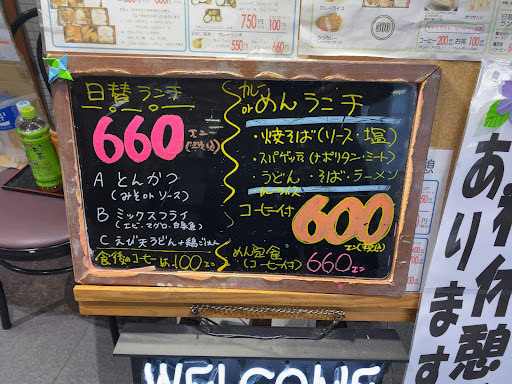 日替ランチ
660エン(税込)
A とんかつ
(みそorソース)
B ミックスフライ
(エビ・マグロ・白身魚)
C えび天うどん+鶏ごはん
食後のコーヒーは、100エン
カレーorめんランチ
・焼そば(ソース・塩)
・スパゲッティ(ナポリタン・ミート)
・うどん・そば・ラーメン
・カレーライス
コーヒー付 600エン(税込)
めん定食(コーヒー付) 660エン
WELCOME
750円
100円
550円
660円
カレーライス
コーヒー 200円
お茶 100円
休憩
あります